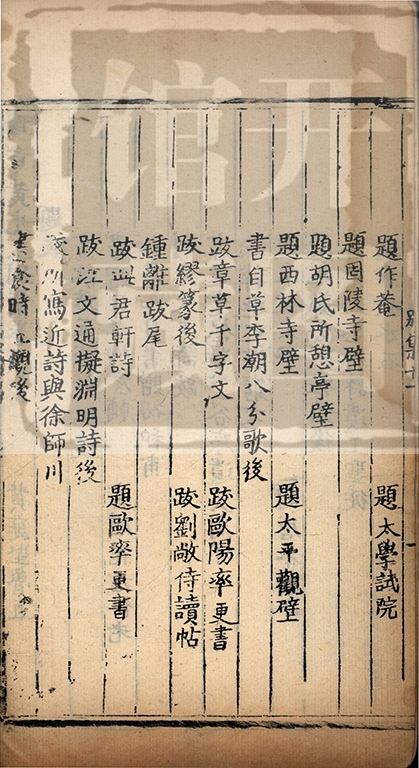 别集十
題作菴 題太學試院
題固陵寺壁
題胡氏所憩亭壁
題西林寺壁 題太平觀壁
書自草李潮八分歌後
跋章草千字文 跋歐陽率更書
跋繆篆後 跋劉敞侍讀帖
鍾離跋尾
跋此君軒詩 題歐率更書
跋江文通擬淵明詩後
跋所寫近詩與徐師川
食時五觀後
馆开